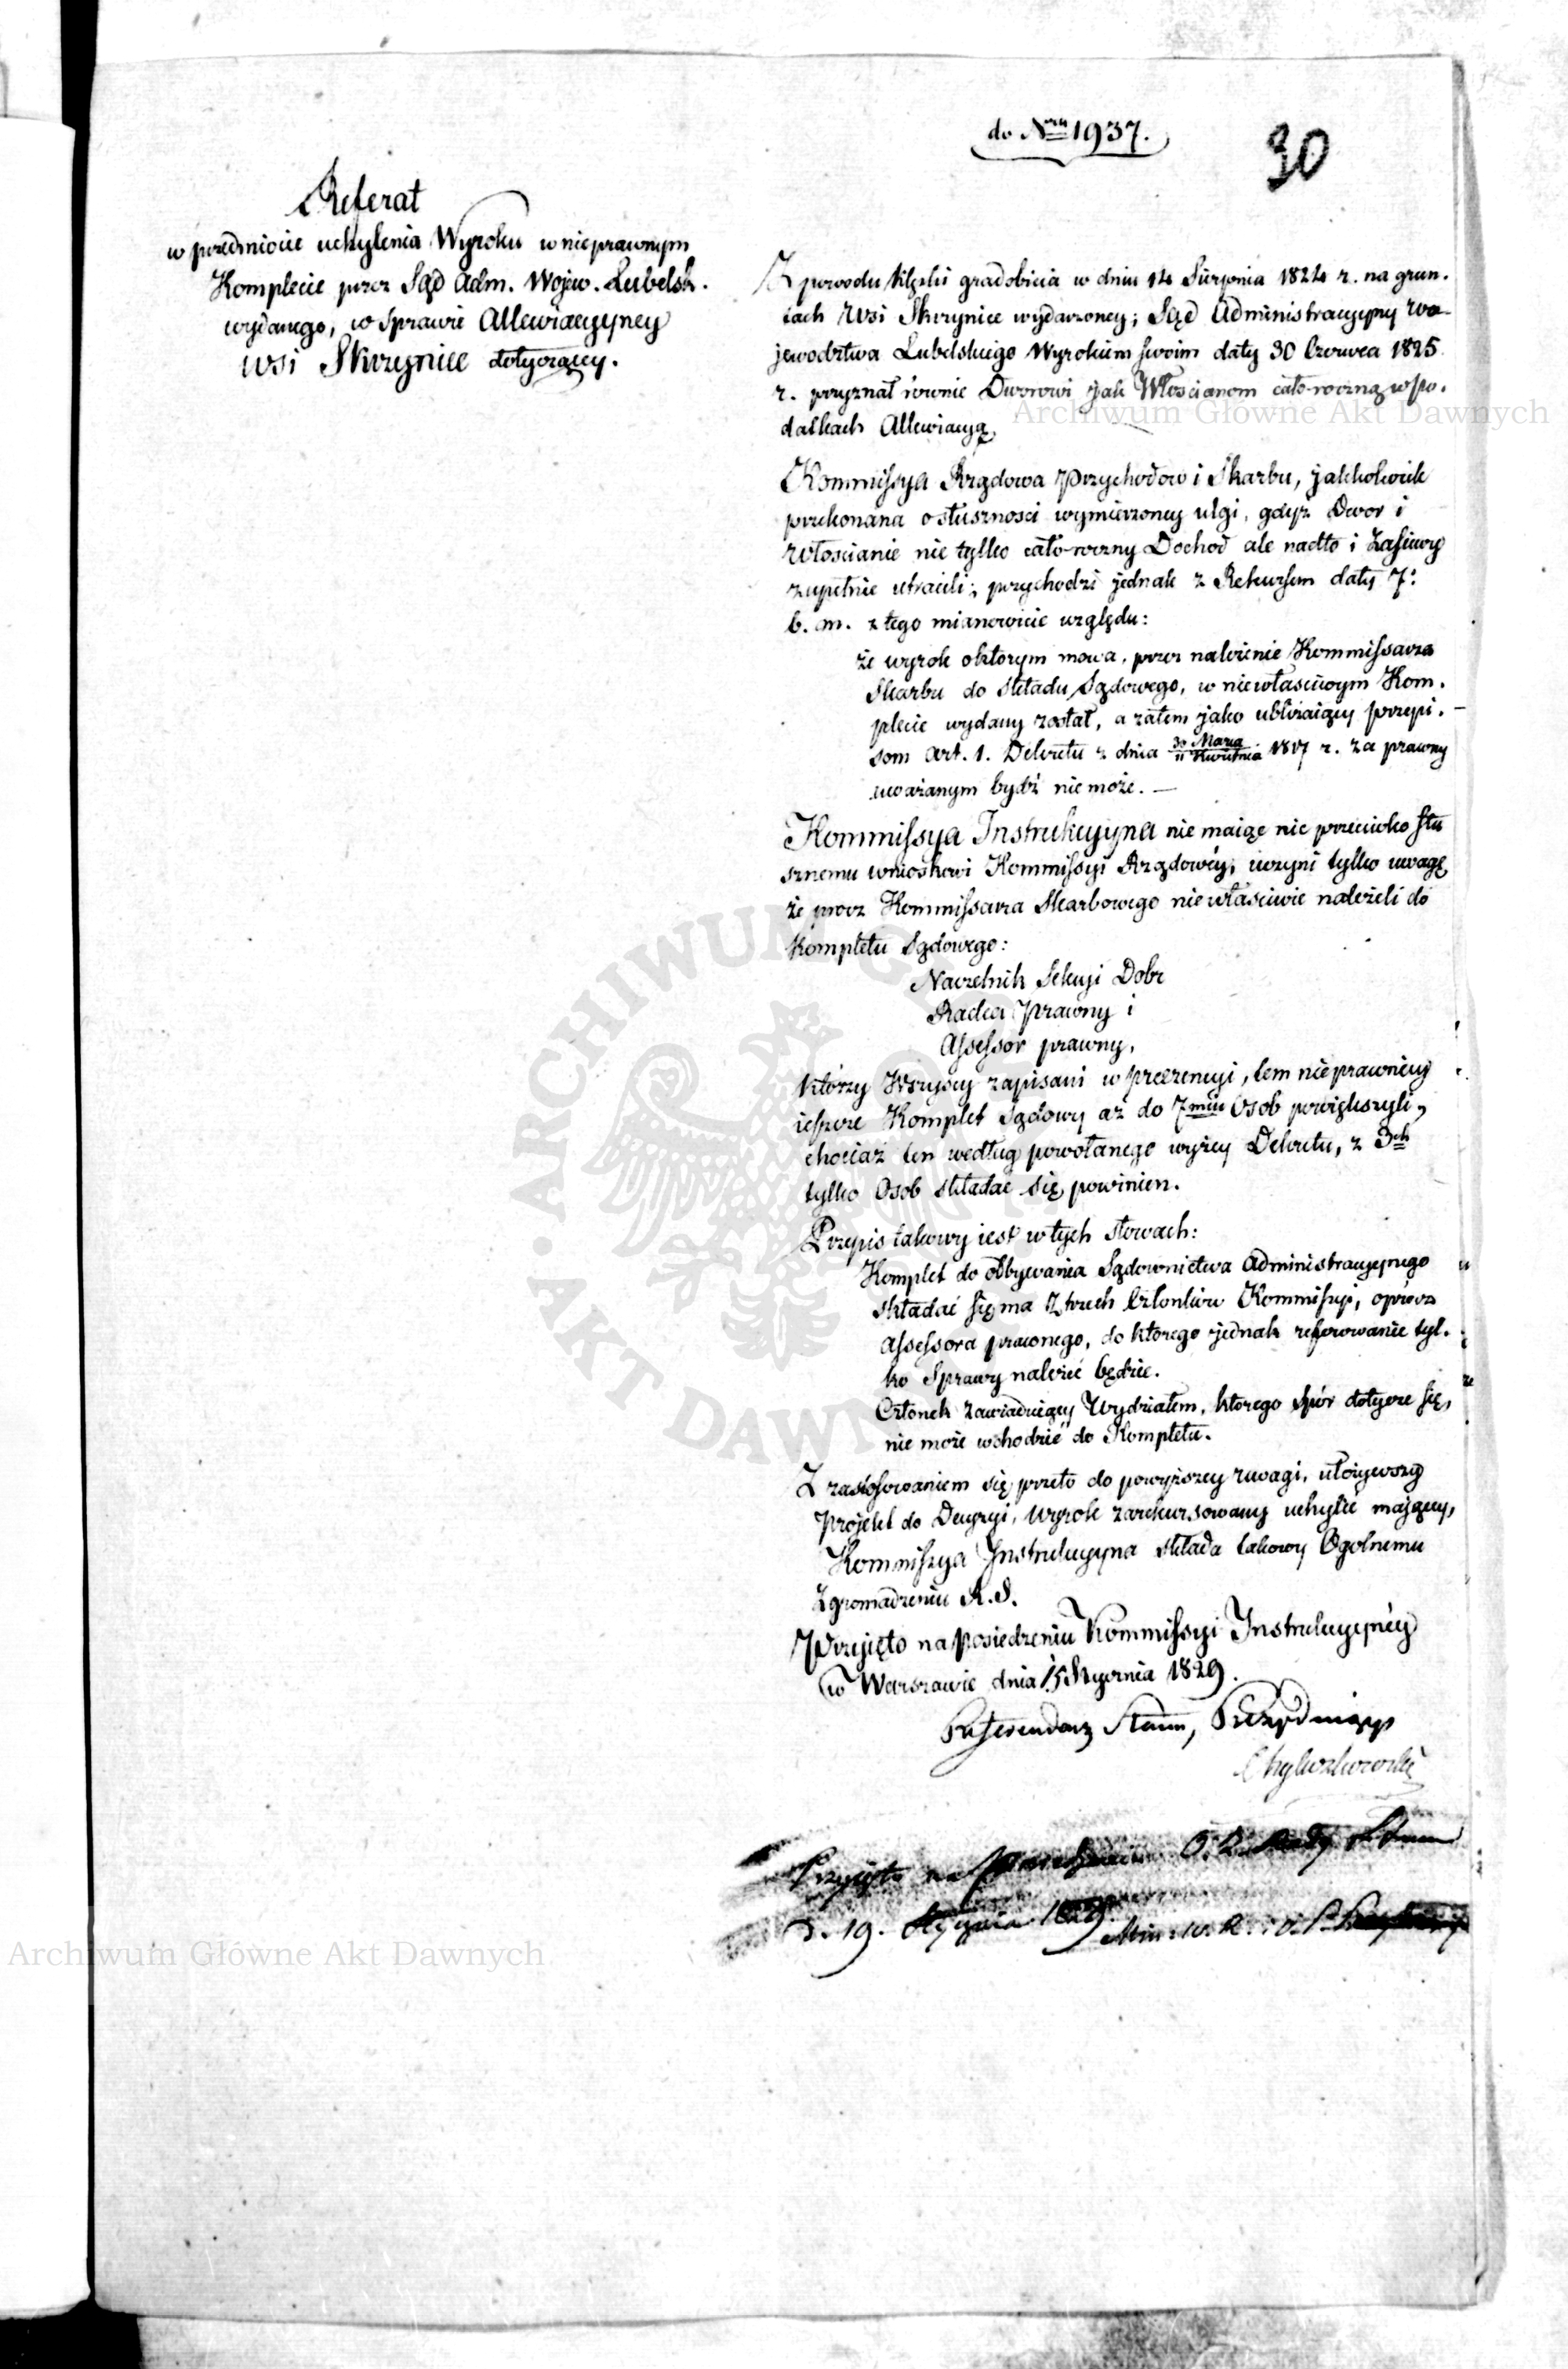 do Nru 1937.
30
Referat
w przedmiocie uchylenia Wyroku w nieprawnym
Komplecie przez Sąd Adm. Wojew. Lubelsk.
wydanego, w sprawie Allewiacyyney
wsi Skrzynice dotyczącey.
Z powodu klęski gradobicia w dniu 14 Sierpnia 1824 r. na grun-
tach Wsi Skrzynice wydarzoney; Sąd Administracyyny Wo-
jewodztwa Lubelskiego Wyrokiem swoim daty 30 Czerwca 1825
r. przyznał równie Dworowi jak Włoscianom cało-roczną w po-
datkach Allewiacyą.
Kommissya Rządowa Przychodow i Skarbu, jakkolwiek
przekonana o słusznosci wymierzoney ulgi, gdyż Dwor i
Włoscianie nie tylko cało-roczny Dochod ale nadto i Zasiewy
zupełnie utracili; przychodzi jednak z Rekursem daty 7:
b. m. z tego mianowicie względu:
że wyrok o którym mowa, przez należenie Kommissarza
Skarbu do składu Sądowego, w niewłasciwym Kom-
plecie wydany został, a zatem jako ubliżaiący przepi-
som art. 1. Dekretu z dnia 30 Marca / 11 Kwietnia 1817 r. za prawny
uważanym bydź nie może. —
Kommissya Instrukcyyna nie maiąc nic przeciwko słu
sznemu wnioskowi Kommissyi Rządowéy, uczyni tylko uwagę
że prócz Kommissarza Skarbowego niewłasciwie należeli do
Kompletu Sądowego:
Naczelnik Sekcyi Dobr
Radca Prawny i
Assessor prawny,
którzy Wszyscy zapisani w prezencyi, tem nieprawniey
ieszcze Komplet Sądowy aż do 7miu Osób powiększyli,
chociaż ten według powołanego wyżey Dekretu, z 3ch
tylko Osob składać się powinien.
Przepis takowy iest w tych słowach:
Komplet do odbywania Sądownictwa administracyynego
składać się ma z trzech Członków Kommissyi, oprócz
Assessora prawnego, do którego jednak referowanie tyl-
ko Sprawy należeć będzie.
Członek zawiaduiący Wydziałem, którego spór dotycze się,
nie może wchodzić do Kompletu.
Z zastosowaniem się przeto do powyższey uwagi, ułożywszy
Projekt do Decyzyi, Wyrok zarekursowany uchylić mający,
Kommissya Instrukcyyna składa takowy Ogolnemu
Zgromadzeniu R. S.
Przyjęto na Posiedzeniu Kommissyi Instrukcyynéy
w Warszawie dnia 15 Stycznia 1829.
Referendarz Stanu, Prezyduiący
Przyięto na posiedzeniu O. Z. Rady Stanu
d. 19. Stycznia 1829.
Archiwum Główne Akt Dawnych
Archiwum Główne Akt Dawnych